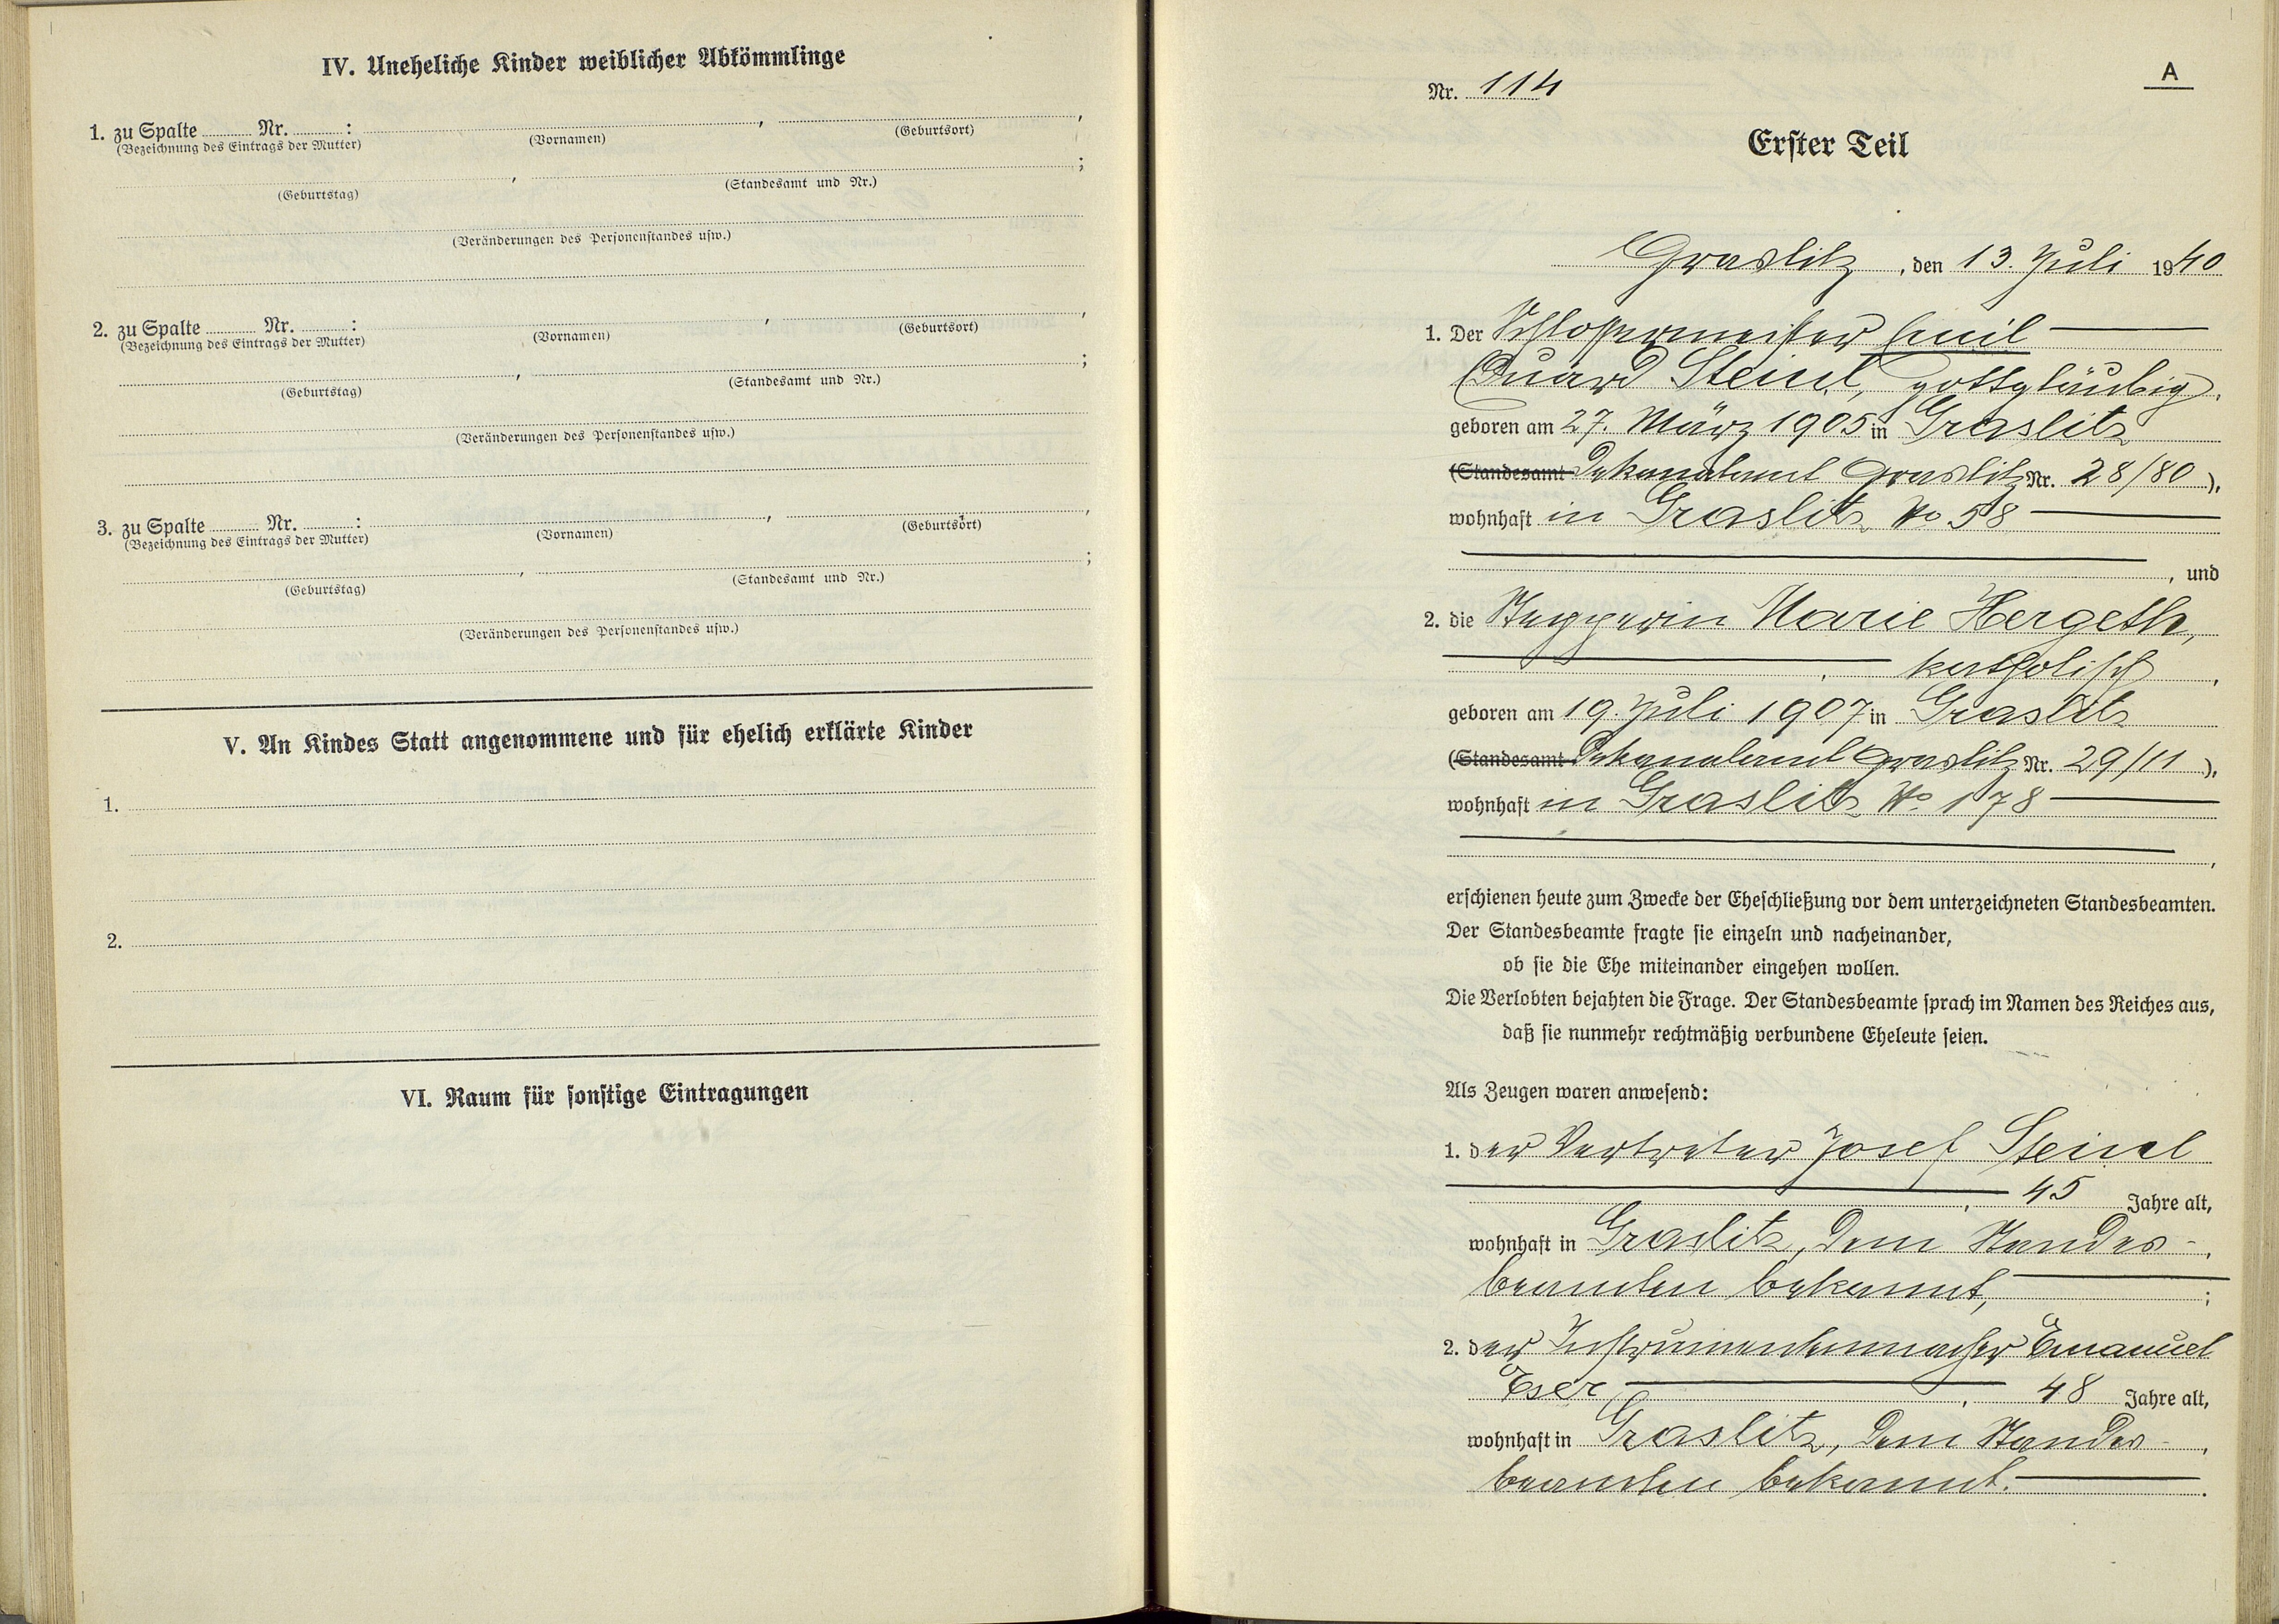 IV. Uneheliche Kinder weiblicher Abkömmlinge
1. zu Spalte Nr. : , ,
(Bezeichnung des Eintrags der Mutter) (Vornamen) (Geburtsort)
, ;
(Geburtstag) (Standesamt und Nr.)
(Veränderungen des Personenstandes usw.)
2. zu Spalte Nr. : , ,
(Bezeichnung des Eintrags der Mutter) (Vornamen) (Geburtsort)
, ;
(Geburtstag) (Standesamt und Nr.)
(Veränderungen des Personenstandes usw.)
3. zu Spalte Nr. : , ,
(Bezeichnung des Eintrags der Mutter) (Vornamen) (Geburtsort)
, ;
(Geburtstag) (Standesamt und Nr.)
(Veränderungen des Personenstandes usw.)
V. An Kindes Statt angenommene und für ehelich erklärte Kinder
1.
2.
VI. Raum für sonstige Eintragungen
A
Nr. 114
Erster Teil
Graslitz, den 13. Juli 1940
1. Der Schlossermeister Emil
Eduard Steinl, gottgläubig,
geboren am 27. März 1905 in Graslitz
(Standesamt Dekanalamt Graslitz Nr. 28/80),
wohnhaft in Graslitz No 58
, und
2. die Stepperin Marie Hergeth,
, katholisch,
geboren am 19. Juli 1907 in Graslitz
(Standesamt Dekanalamt Graslitz Nr. 29/11),
wohnhaft in Graslitz No 178
,
erschienen heute zum Zwecke der Eheschließung vor dem unterzeichneten Standesbeamten.
Der Standesbeamte fragte sie einzeln und nacheinander,
ob sie die Ehe miteinander eingehen wollen.
Die Verlobten bejahten die Frage. Der Standesbeamte sprach im Namen des Reiches aus,
daß sie nunmehr rechtmäßig verbundene Eheleute seien.
Als Zeugen waren anwesend:
1. der Vertreter Josef Steinl
, 45 Jahre alt,
wohnhaft in Graslitz, dem Standes-,
beamten bekannt, ;
2. der Instrumentenmacher Emanuel
Eser , 48 Jahre alt,
wohnhaft in Graslitz, dem Standes-,
beamten bekannt. .